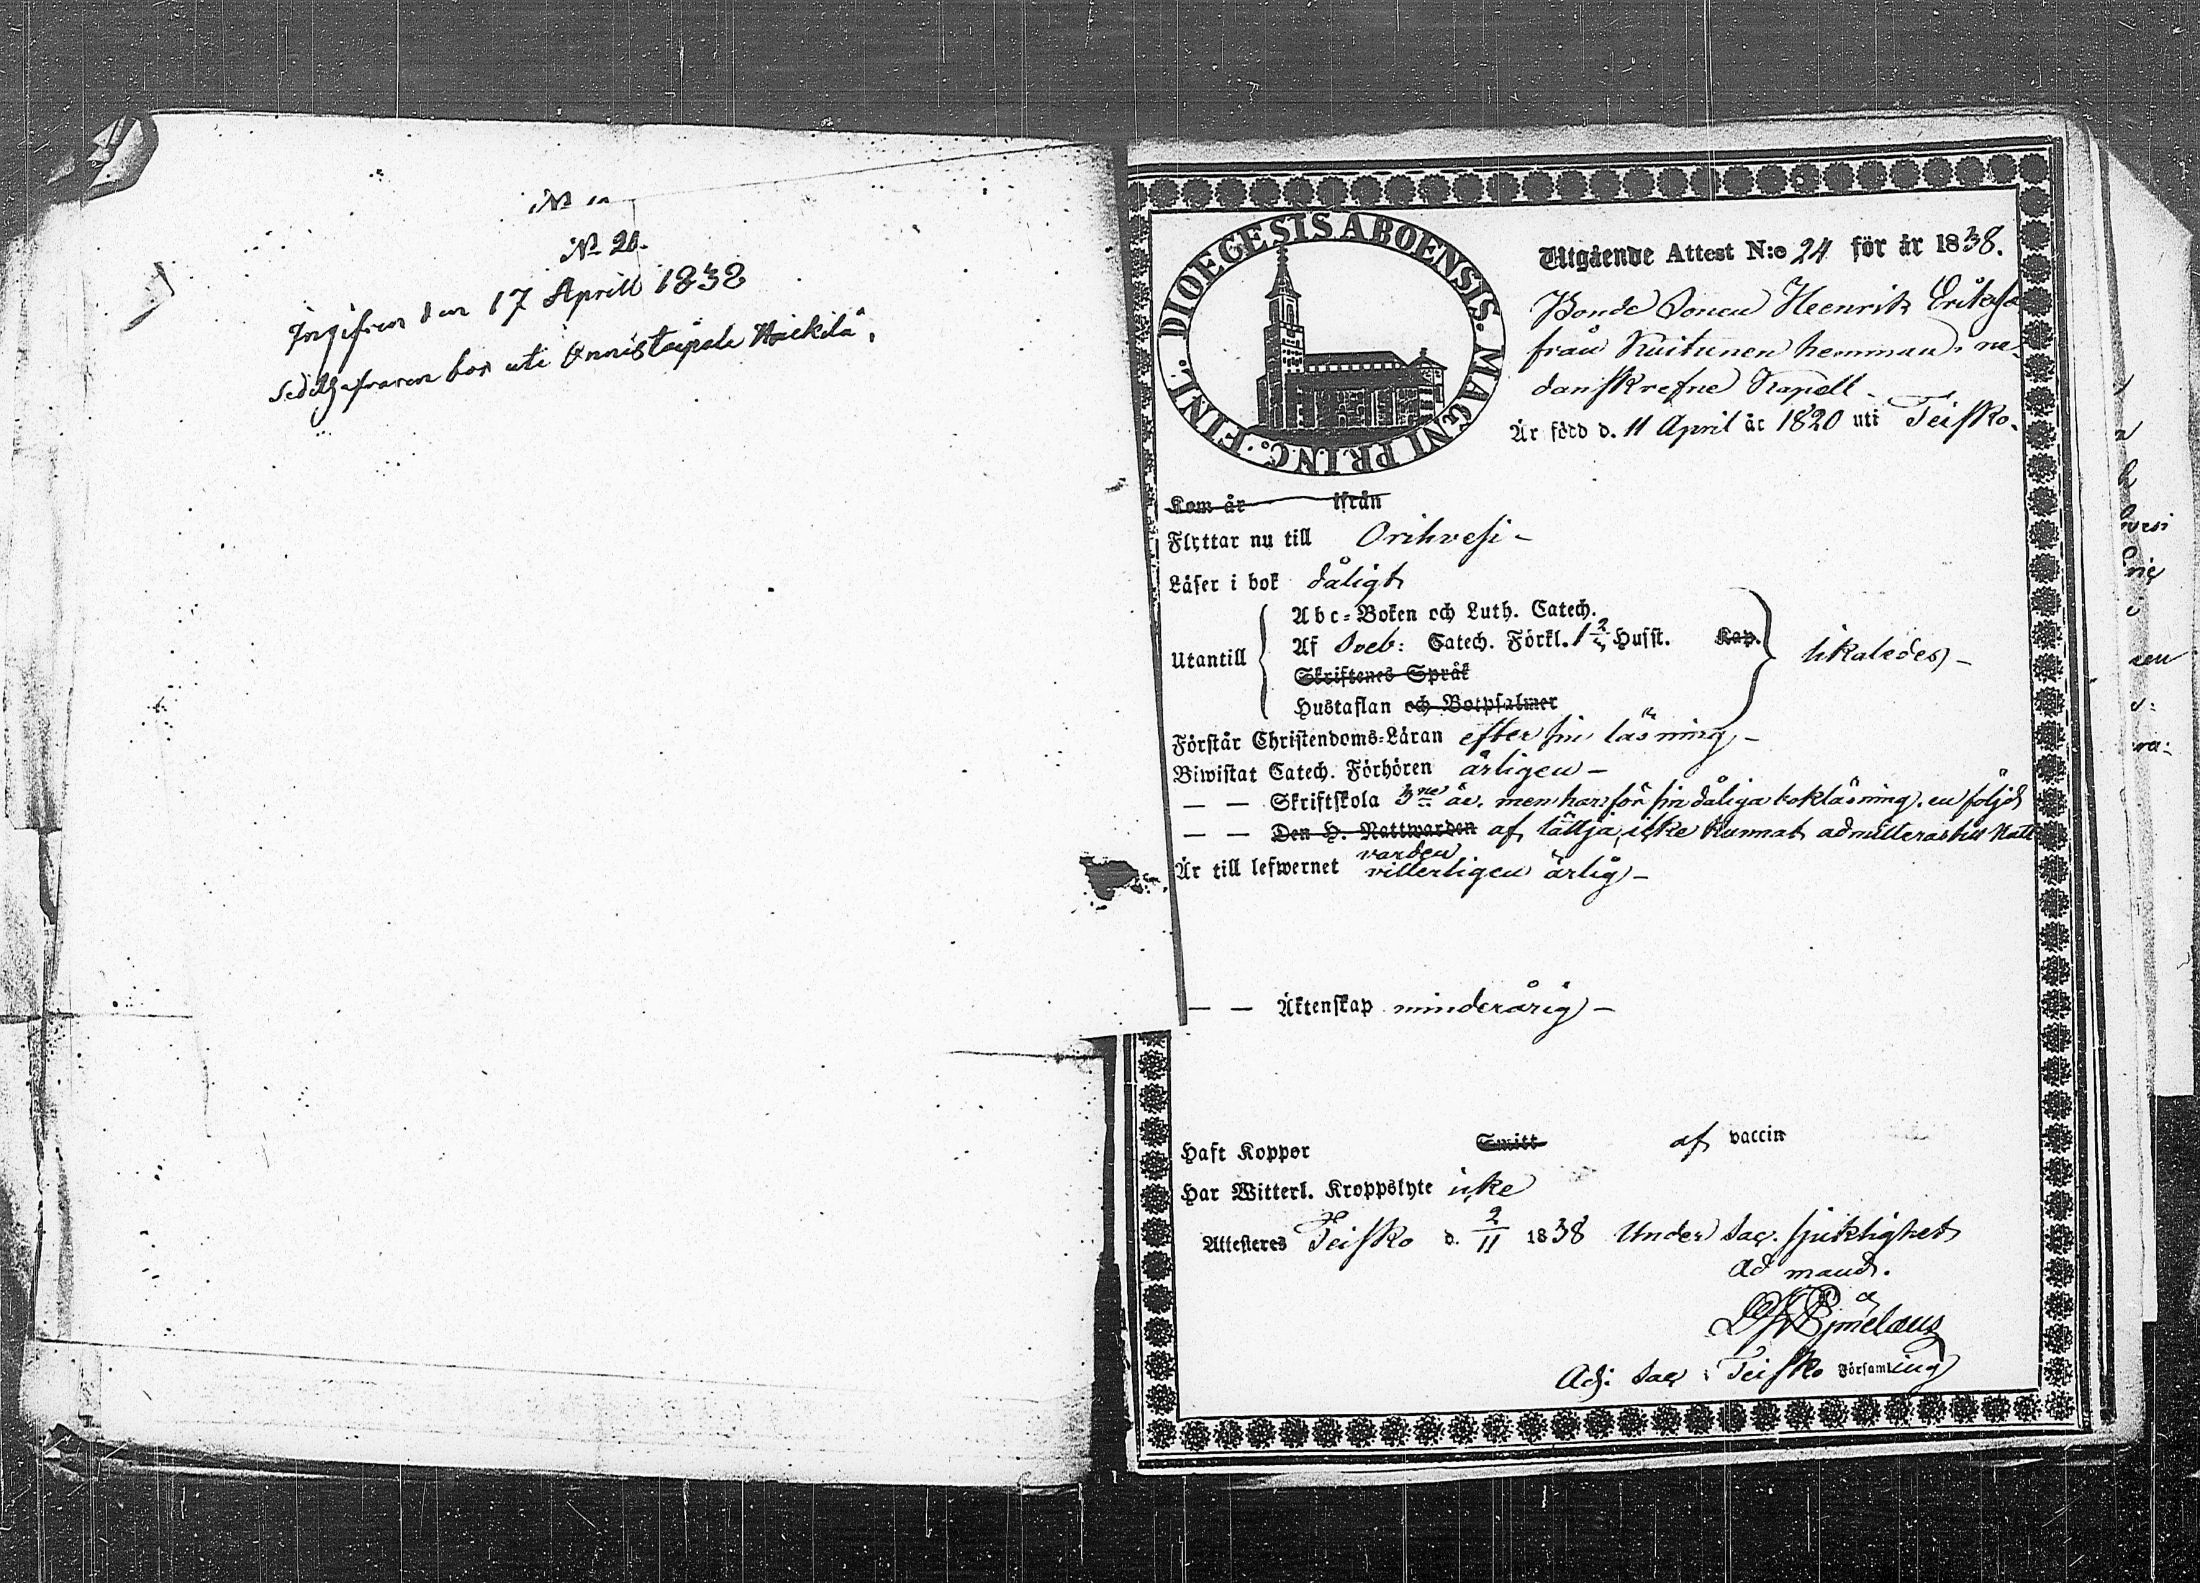 N
N 20.
Ingifven den 17 Aprill 1838
Sedelhafvaren bor uti Onnistaipale Heikilä.
DIOECESIS ABOENSIS. MAGNI PRINC. FINL.
Utgående Attest N:o 24 för år 1838.
Bonde Sonen Heenrik Eriksso
från Kuitunen hemman i ne-
danskrefne Kapell -
Är född d. 11 April år 1820 uti Teisko.
Kom år ifrån
Flyttar nu till Orihvesi -
Läser i bok dåligt
Utantill
Abc-Boken och Luth. Catech.
Af Sveb: Catech. Förkl. 1 2/3 Husst. Kap.
Skriftenes Språk
Hustaflan och Botpsalmer
likaledes -
Förstår Christendoms-Läran efter sin läsning -
Biwistat Catech. Förhören årligen -
— — Skriftskola 3ne år. men har för sin dåliga bokläsning, en följd
— — Den H. Nattwarden af lättja, icke kunnat admitteras till Natt
varden
Är till lefwernet vitterligen ärlig -
— — Äktenskap minderårig -
Haft Koppor Smitt af vaccin
Har Witterl. Kroppslyte icke
Attesteres Teisko d. 2/11 1838 Under Sac. sjuklighet
Ad mand.
Adj. Sac i Teisko Församling